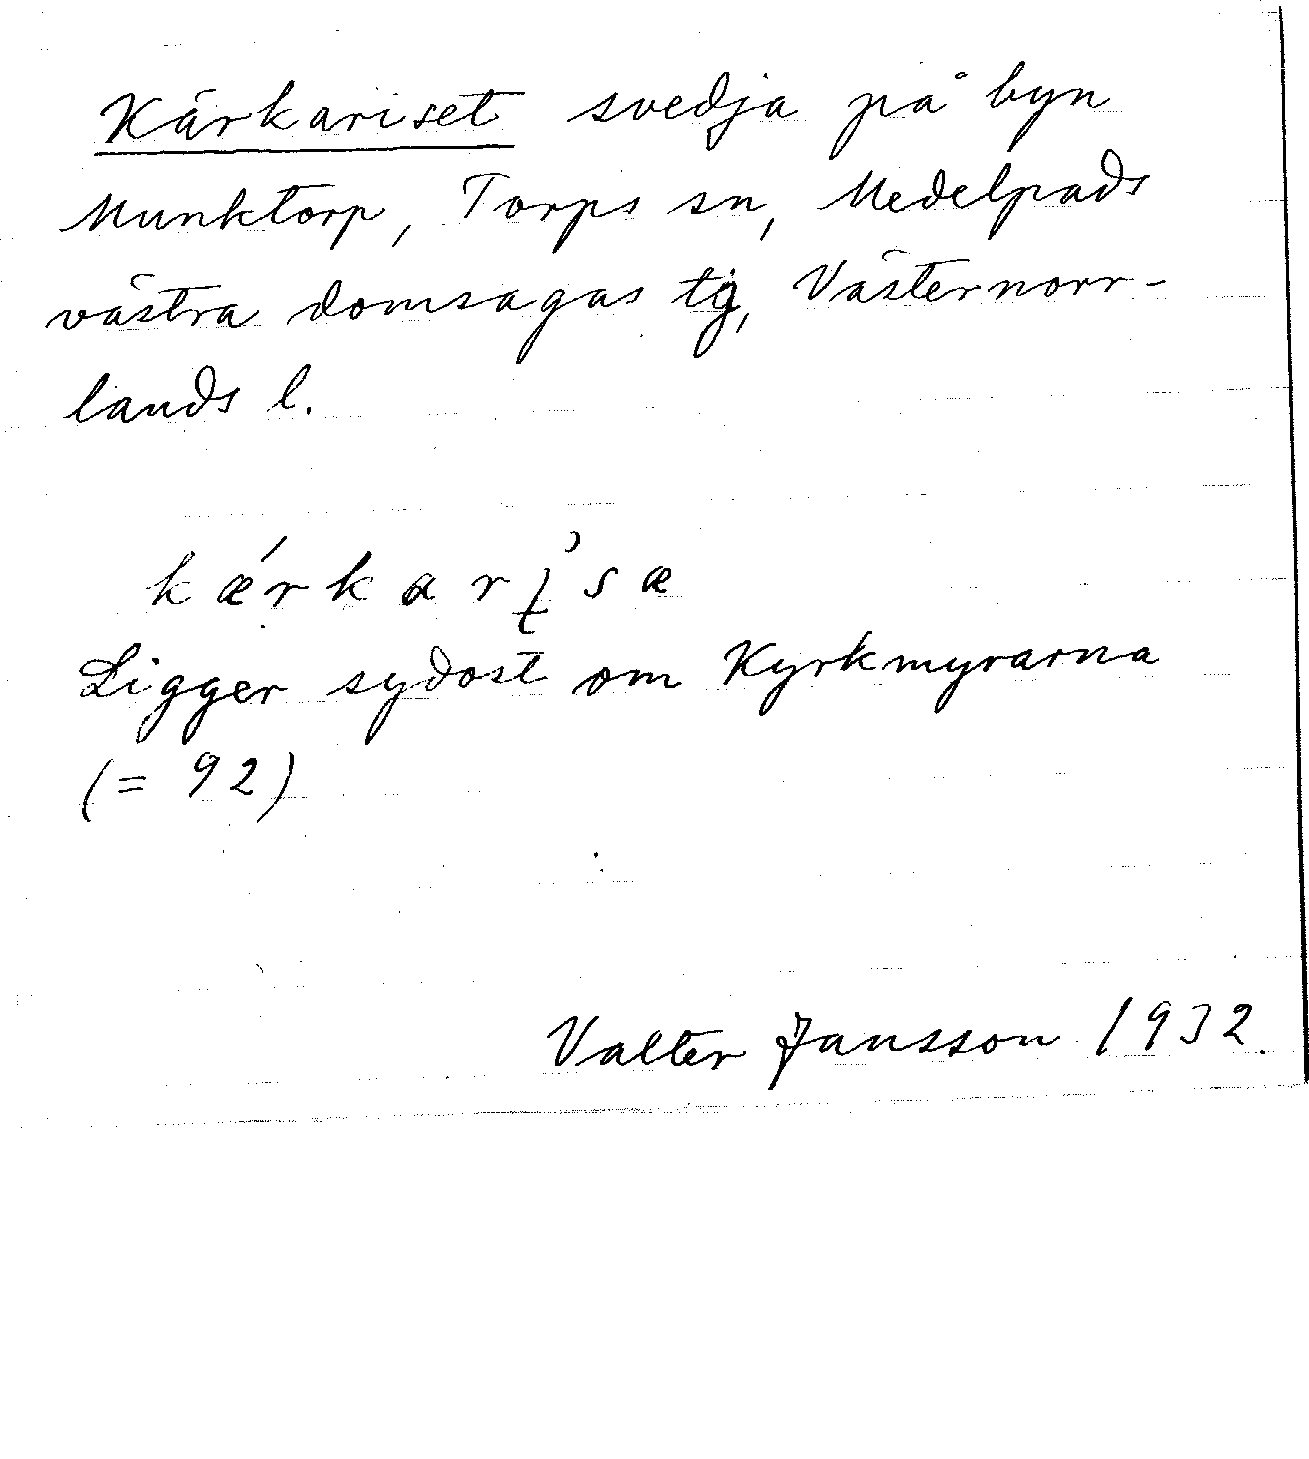 Kärkariset svedja på byn
Munktorp, Torps sn, Medelpads
västra domsagas tg, Västernorr-
lands l.
Ligger sydost om Kyrkmyrarna
(= 92)
Valter Jansson 1932.